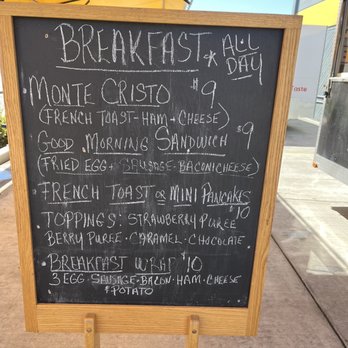 BREAKFAST * ALL DAY
MONTE CRISTO $9
(FRENCH TOAST-HAM+CHEESE)
GOOD MORNING SANDWICH $9
(FRIED EGG+ SAUSAGE-BACON CHEESE)
FRENCH TOAST OR MINI PANCAKES
$10
TOPPINGS: STRAWBERRY PUREE
BERRY PUREE · CARAMEL · CHOCOLATE
· BREAKFAST WRAP $10
3 EGG · SAUSAGE · BACON · HAM · CHEESE
& POTATO